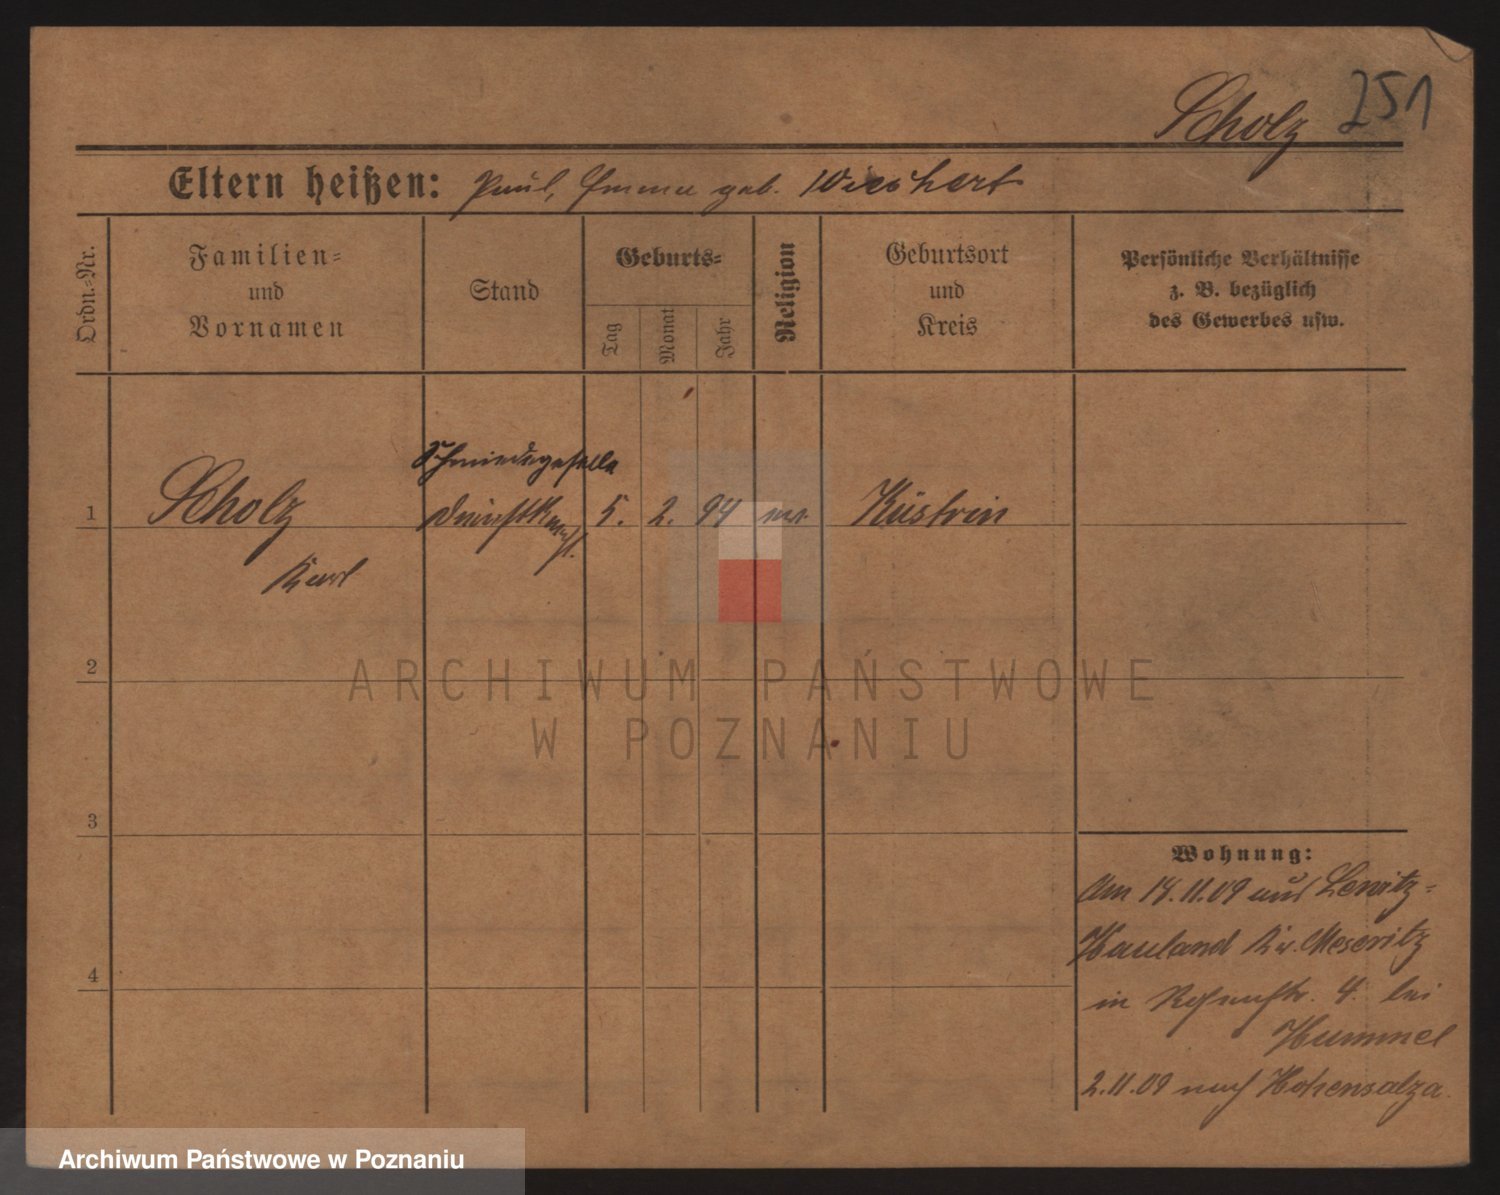 Scholz 251
Eltern heißen: Paul, Emma geb. Wiechert
Ordn.-Nr.
Familien-
und
Vornamen
Stand
Geburts-
Tag
Monat
Jahr
Religion
Geburtsort
und
Kreis
Persönliche Verhältnisse
z. B. bezüglich
des Gewerbes usw.
Schmiedegeselle
1 Scholz Dienstknecht. 5. 2. 94 ev. Küstrin
Karl
2
3
4
Wohnung:
Am 14.11.09 aus Lewitz-
Hauland Kr. Meseritz
in 4. bei
Hummel
2.11.09 nach Hohensalza.
ARCHIWUM PAŃSTWOWE
W POZNANIU
Archiwum Państwowe w Poznaniu